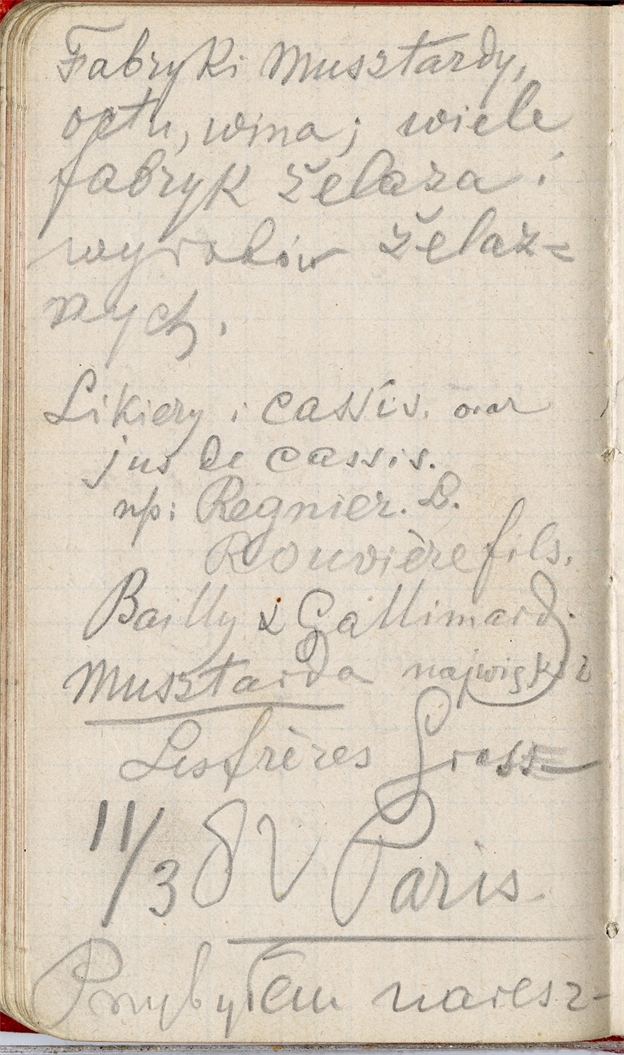 Fabryki Musztardy,
octu, wina; wiele
fabryk żelaza i
wyrobów żelaz=
nych.
Likiery i cassis. oraz
jus de cassis.
np: Regnier. L.
Rouvière fils.
Bailly & Gallimard.
Musztarda najwięk
Les frères
11/3 Paris
Przybyłem naresz-